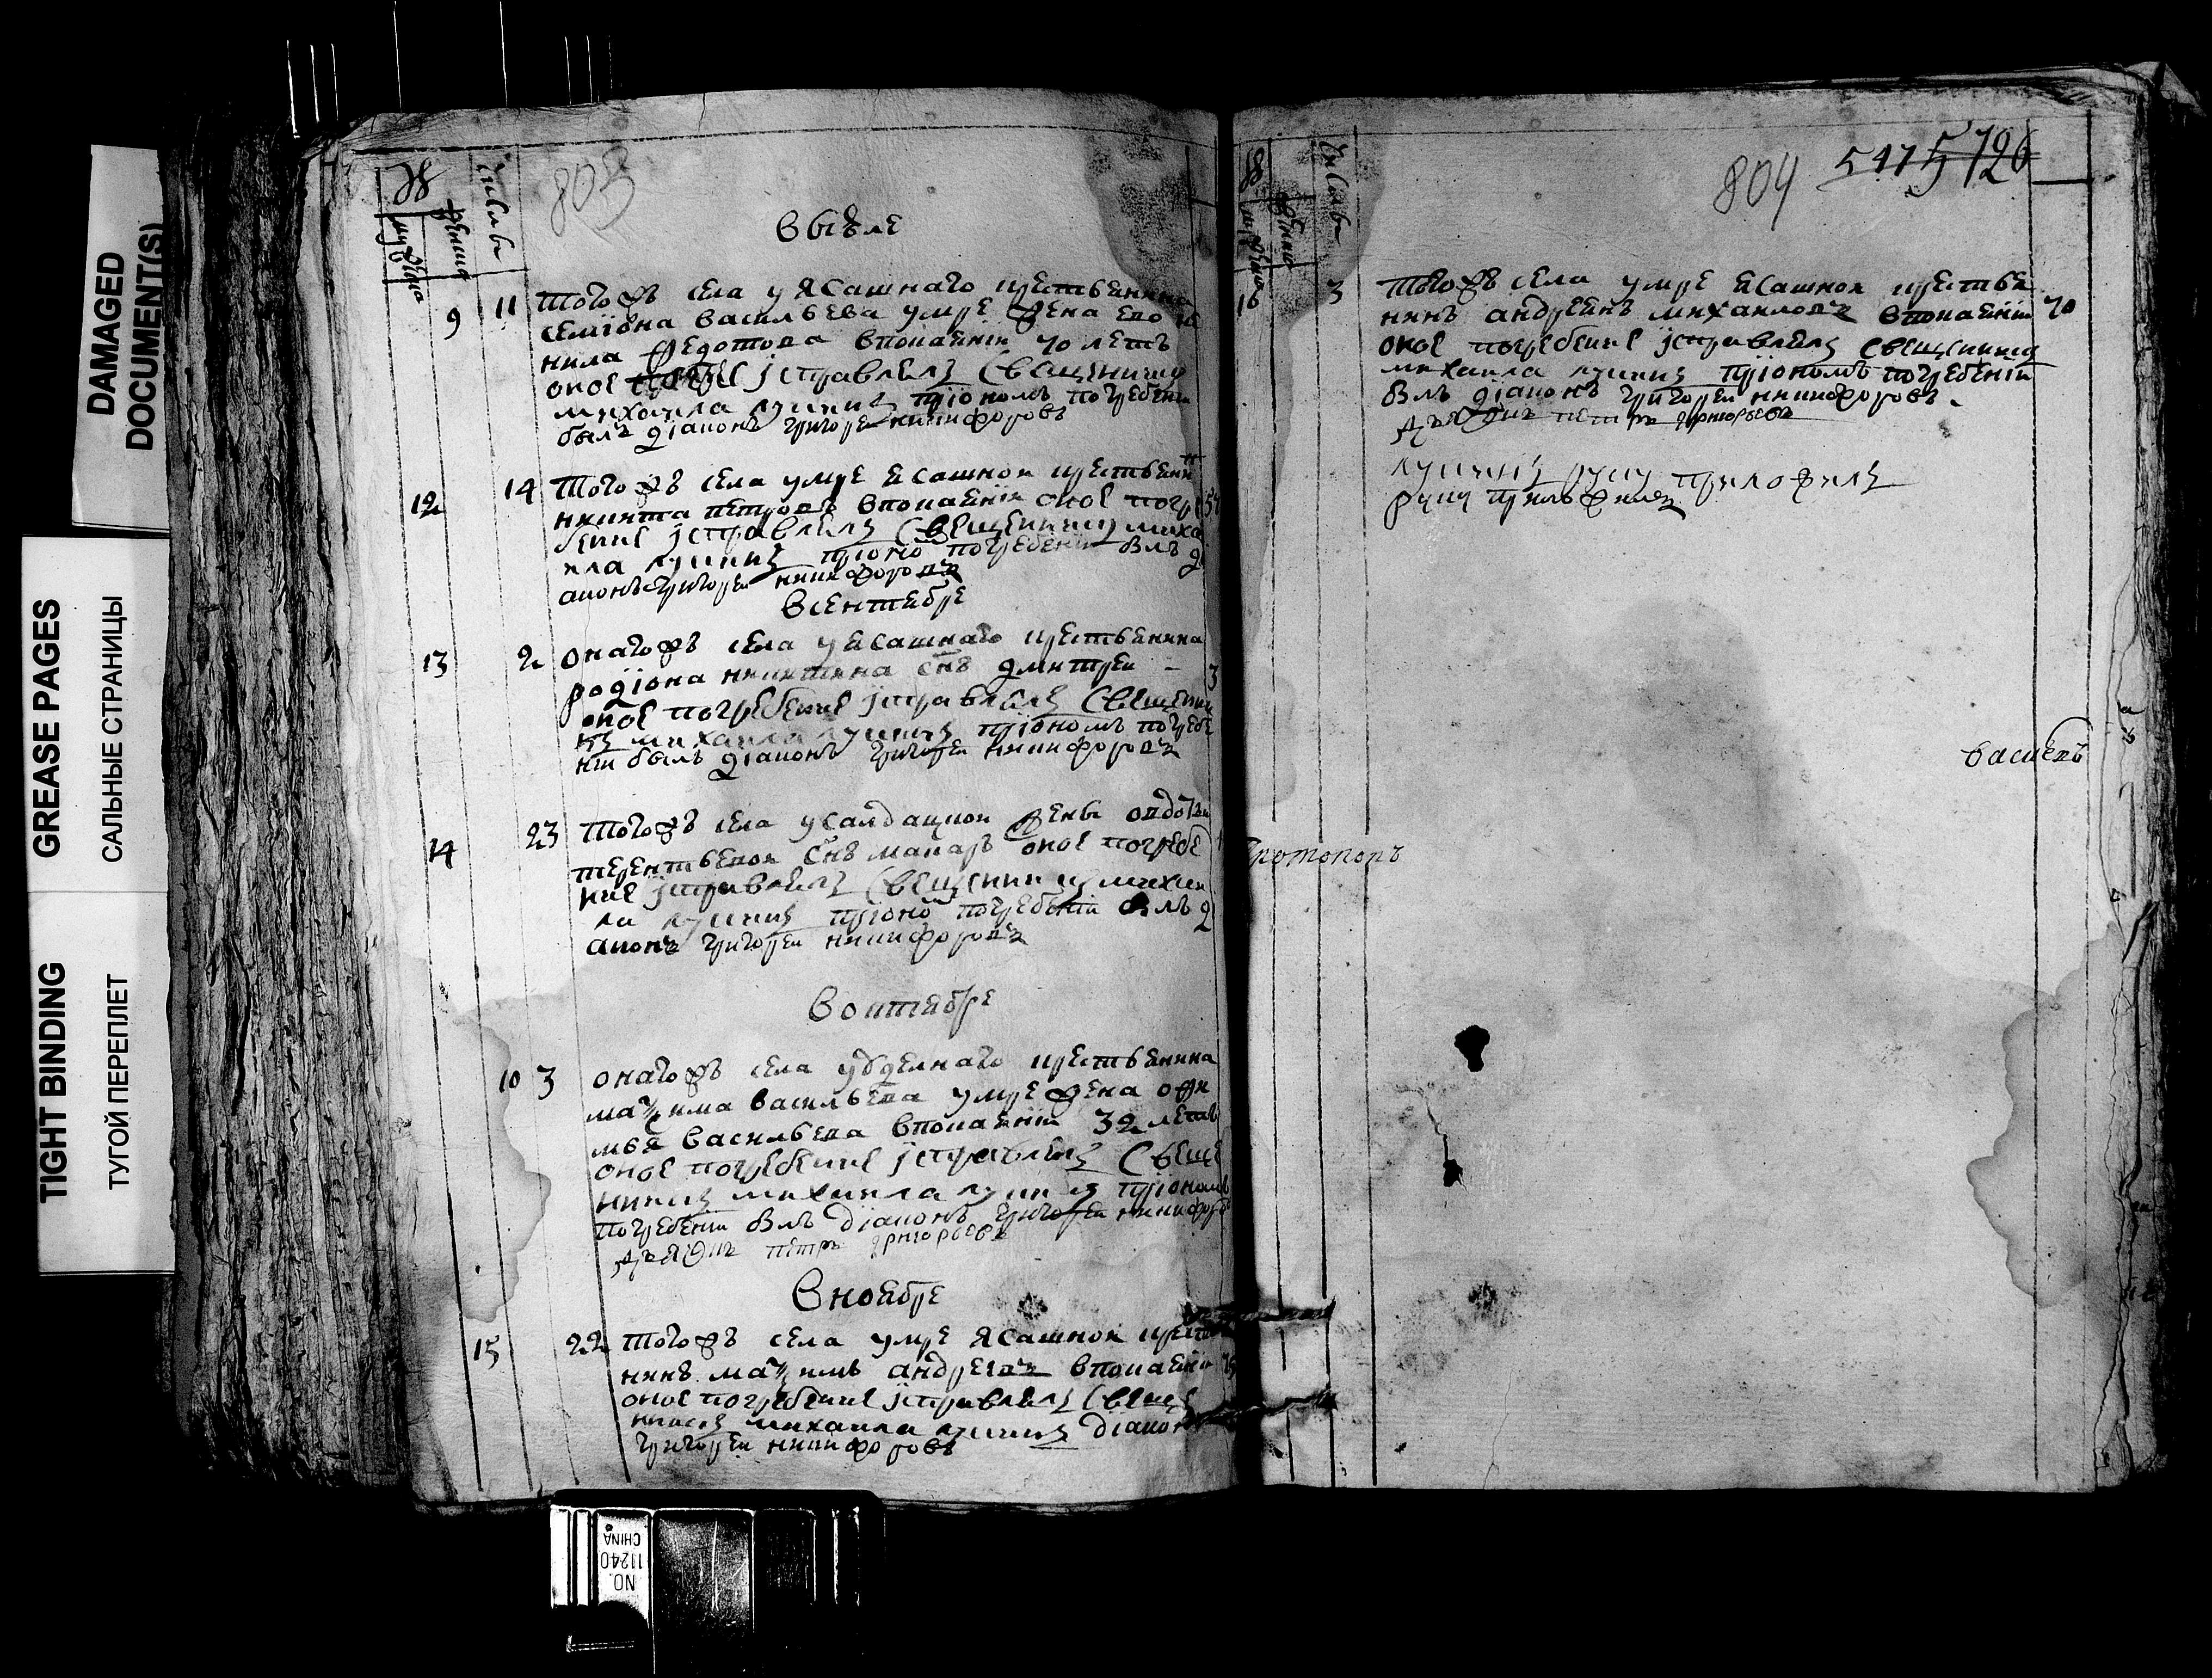 DAMAGED
DOCUMENT(S)
GREASE PAGES
САЛЬНЫЕ СТРАНИЦЫ
TIGHT BINDING
ТУГОЙ ПЕРЕПЛЕТ
№
числа
мужеска
женска
803
в ыюле
9 11 тогожъ села у ясашнаго крестьянина
семиѡна васильева умре жена
нила федотова впокаянiи 70 летъ
оное iсправлялъ священникъ
михаила лукинъ прiономъ погребенiи
былъ дiаконъ григореи никифоровъ
12 14 тогожъ села умре ясашнои крестьянин
никита петровъ впокаянiи оное погре
бение iсправлялъ священникъ миха
ила лукинъ прiоно погребенiи былъ дi
аконъ григореи никифоровъ
всентябре
13 2 онагожъ села у ясашнаго крестьянина
родiона никитина снъ дмитреи 3
оное погребение iсправлялъ священни
къ михаила лукинъ прiономъ погребе
нiи былъ дiаконъ григореи никифоровъ
14 23 тогожъ села у салдацкои жены овдотьи
терентьевои снъ макаръ оное погребе
ние iсправлялъ священникъ михаи
ла лукинъ прiоно погребенiи былъ дi
аконъ григореи никифоровъ
воктябре
10 3 онагожъ села удѣлнаго крестьянина
маѯима васильева умре жена офи
мья васильева впокаянiи 32 летъ
оное погребение iсправлялъ свяще
никъ михаила лукинъ прiономъ
погребенiи былъ дiаконъ григореи никифоро
дьячокъ петръ григорьевъ
вноябре
15 22 тогожъ села умре ясашнои крестья
нинъ маѯимъ андреевъ впокаянiи
оное погребение iсправлялъ свяще
никъ михаила лукинъ дiакон
григореи никифоровъ
804 5726
№
числа
16 3 тогожъ села умре ясашнои крестья
нинъ андреянъ михаиловъ впокаянiи 70
оное погребение iсправлялъ священникъ
михаила лукинъ прiономъ погребенiи
былъ дiаконъ григореи никифоровъ
дьячокъ петръ григорьевъ
лукинъ руку приложилъ
руку приложилъ
протопопъ
NO.
11240
CHINA